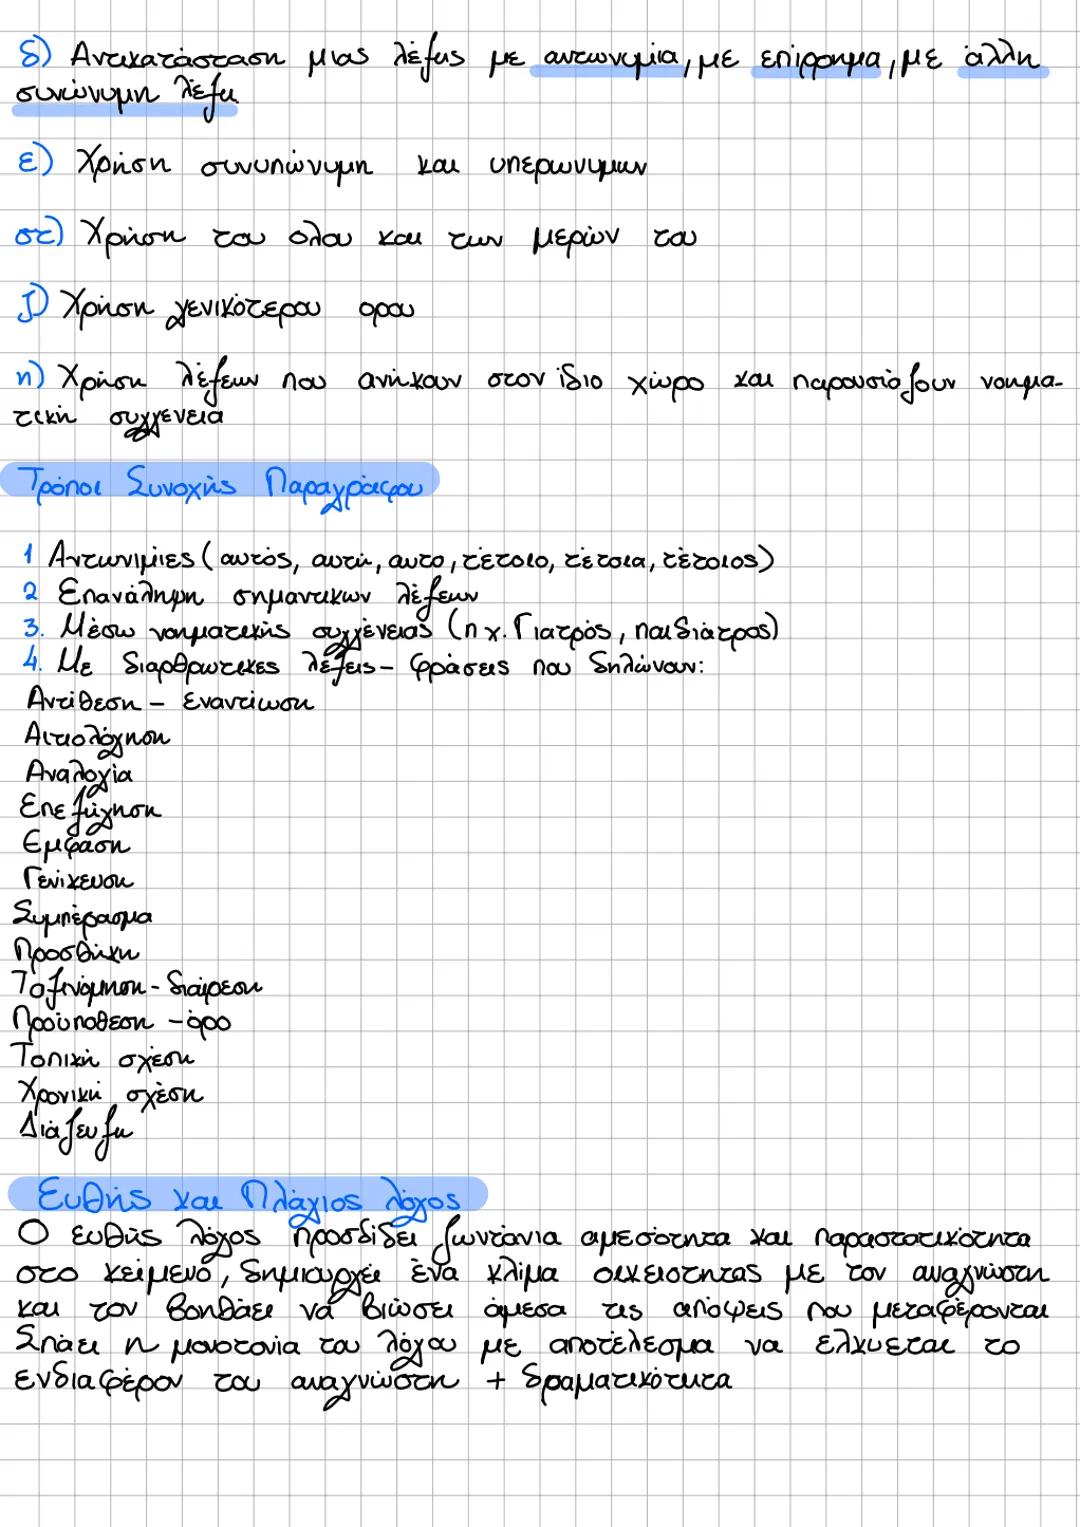 δ) Αντικατάσταση μιας λέξης με αντωνυμία, με επίρρημα, με άλλη
συνώνυμη λέξη
ε) Χρήση συνυπώνυμη και υπερωνυμων
στ) Χρήση του ολου και των μερών του
ζ) Χρήση γενικότερου ορου
η) Χρήση λέξεων που ανήκουν στον ίδιο χώρο και παρουσιάζουν νοημα-
τική συγγένεια
Τρόποι Συνοχής Παραγράφου
1 Αντωνιμίες (αυτός, αυτή, αυτο, τέτοιο, τέτοια, τέτοιος)
2 Επανάληψη σημαντικων λέξεων
3. Μέσω νοηματικής συγγένειας (π χ. Γιατρός, παιδιάτρος)
4. Με διαρθρωτικες λέξεις - φράσεις που δηλώνουν:
Αντίθεση - Εναντίωση
Αιτιολόγηση
Αναλογία
Επεξήγηση
Εμφαση
Γενίκευση
Συμπέρασμα
Προσθήκη
Ταξινόμηση - διαίρεση
Προϋποθεση - όρο
Τοπική σχέση
Χρονική σχέση
Διάζευξη
Ευθής και Πλάγιος λόγος
Ο ευθύς λόγος προσδίδει ζωντάνια αμεσότητα και παραστατικότητα
στο κείμενο, δημιουργεί ένα κλίμα οικειότητας με τον αναγνώστη
και τον βοηθάει να βιώσει άμεσα τις απόψεις που μεταφέρονται
Σπάει η μονοτονία του λόγου με αποτέλεσμα να ελκυεται το
ενδιαφέρον του αναγνώστη + δραματικότητα